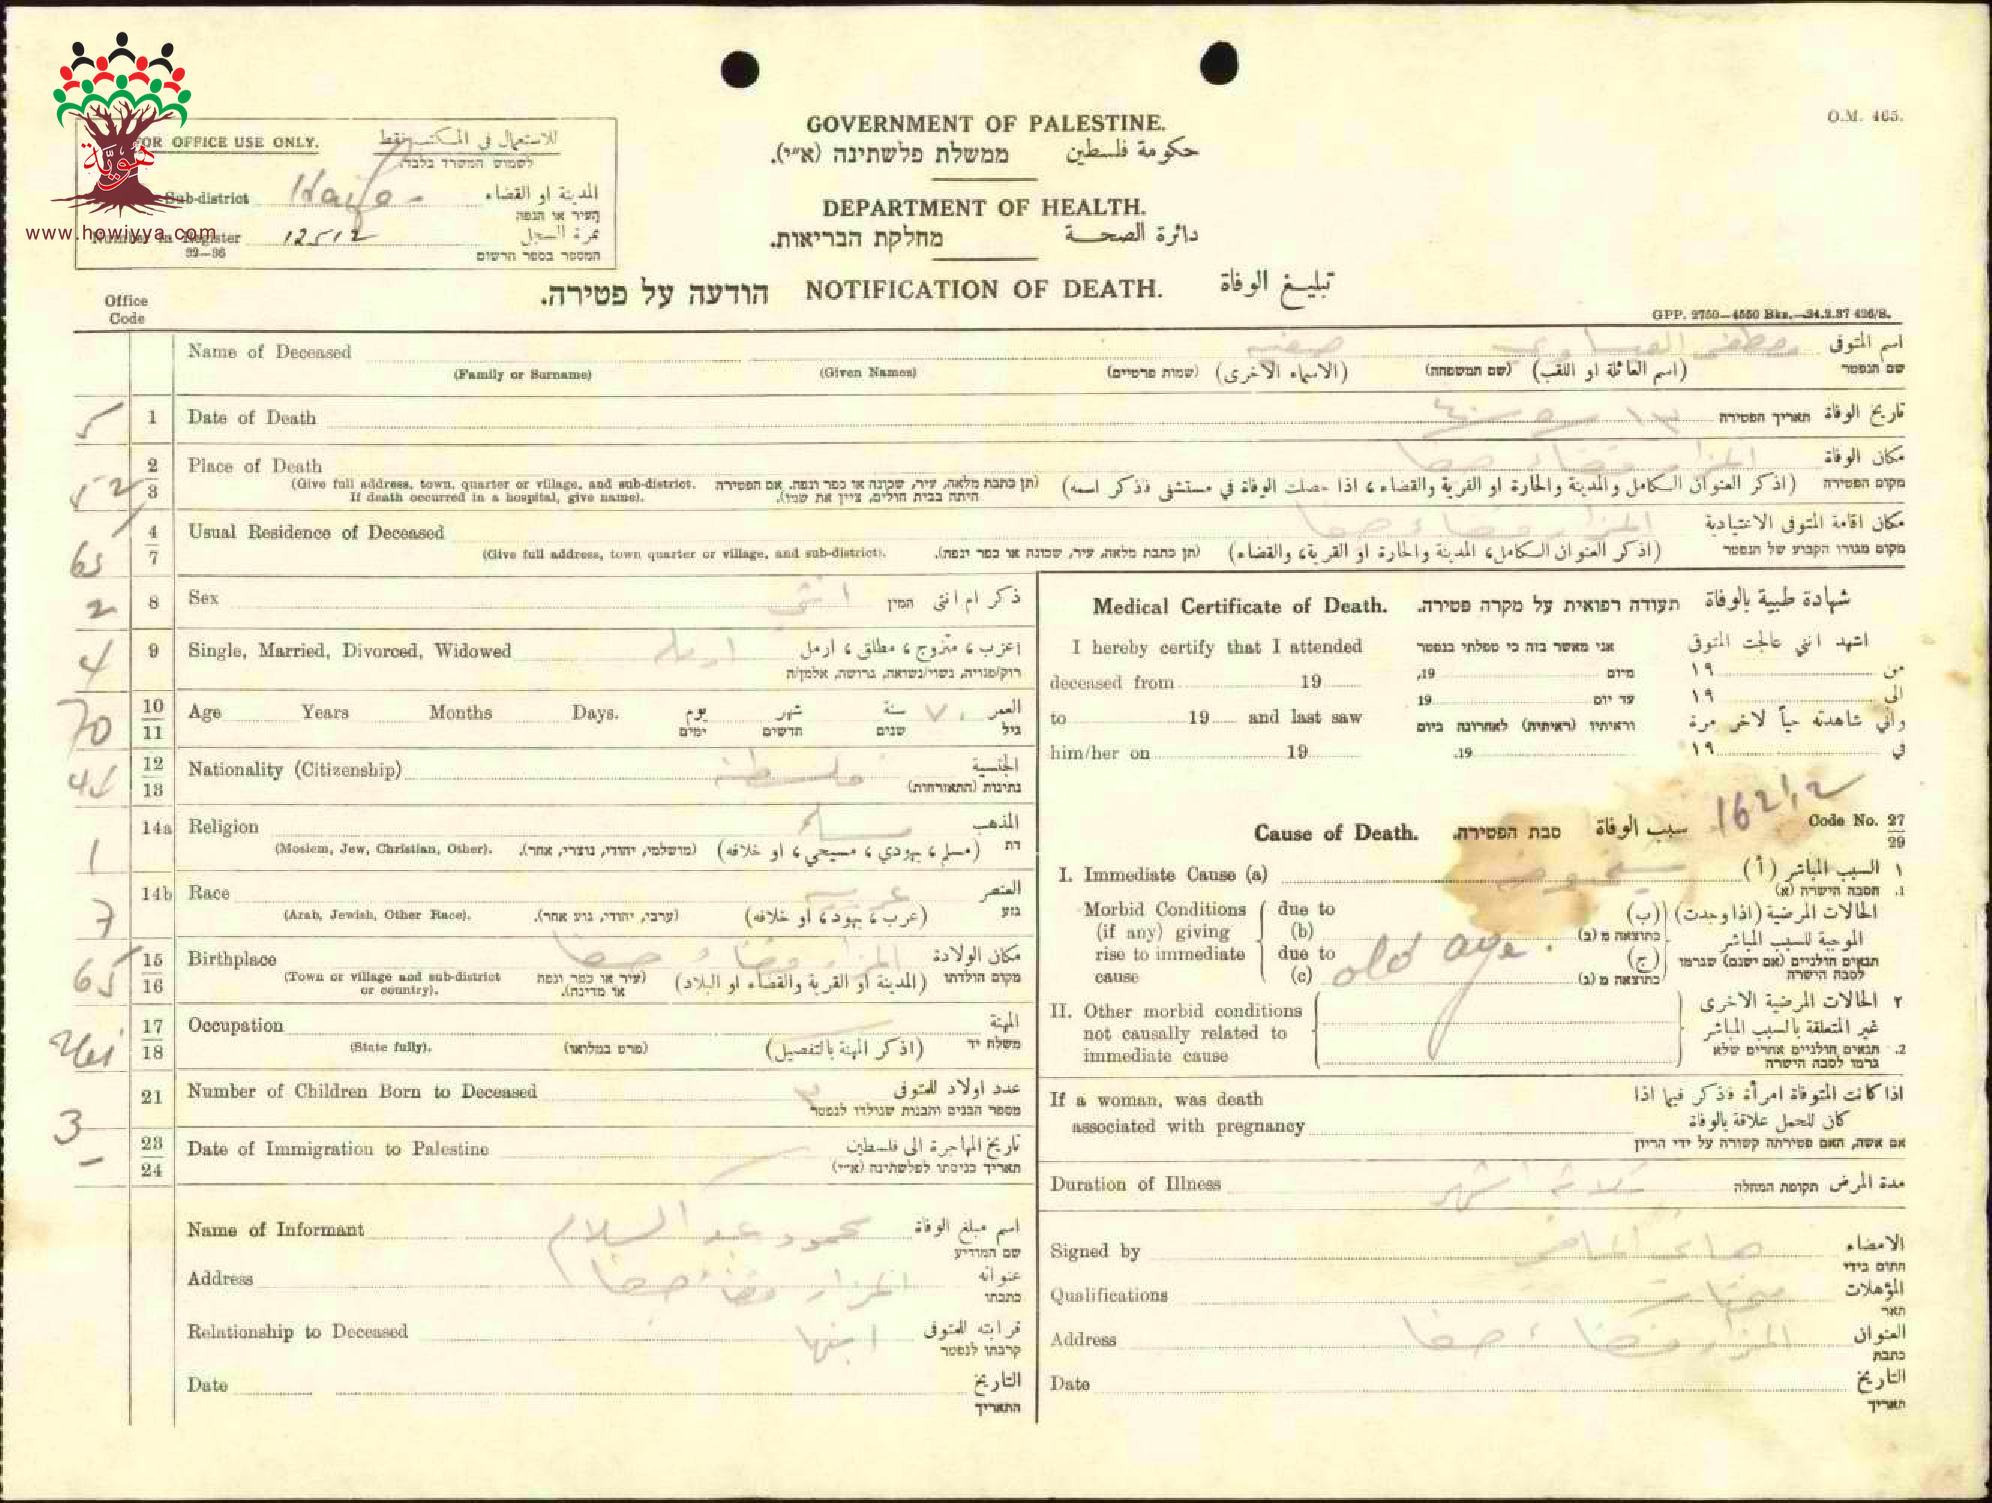 هوية
www.howiyya.com
O.M. 465.
FOR OFFICE USE ONLY. للاستعمال في المكتب فقط
לשמוש המשרד בלבד.
Sub-district Haifa المدينة او القضاء
העיר או הנפה
Number in Register 12512 نمرة السجل
32—36 המספר בספר הרשום
GOVERNMENT OF PALESTINE.
ממשלת פלשתינה (א״י). حكومة فلسطين
DEPARTMENT OF HEALTH.
מחלקת הבריאות. دائرة الصحة
הודעה על פטירה. NOTIFICATION OF DEATH. تبليغ الوفاة
Office
Code
GPP. 2750—4550 Bks.—24.2.37 426/S.
Name of Deceased مصطفى اسم المتوفى
(Family or Surname) (Given Names) (שמות פרטיים) (الاسماء الاخرى) (שם המשפחה) (اسم العائلة او اللقب) שם הנפטר
5 1 Date of Death תאריך הפטירה تاريخ الوفاة
2 Place of Death المزار قضاء حيفا مكان الوفاة
52 3 (Give full address, town, quarter or village, and sub-district. If death occurred in a hospital, give name). (תן כתבת מלאה, עיר, שכונה או כפר ונפה. אם הפטירה היתה בבית חולים, ציין את שמו). (اذكر العنوان الكامل والمدينة والحارة او القرية والقضاء، اذا حصلت الوفاة في مستشفى فذكر اسمه) מקום הפטירה
4 Usual Residence of Deceased المزار قضاء حيفا مكان اقامة المتوفى الاعتيادية
65 7 (Give full address, town quarter or village, and sub-district). (תן כתבת מלאה, עיר, שכונה או כפר ונפה). (اذكر العنوان الكامل، المدينة والحارة او القرية، والقضاء) מקום מגורו הקבוע של הנפטר
2 8 Sex انثى המין ذكر ام انثى
4 9 Single, Married, Divorced, Widowed ارملة اعزب، متزوج، مطلق، ارمل
רוק/פנויה, נשוי/נשואה, גרושה, אלמן/ה
70 10 Age Years Months Days. يوم شهر سنة ٧٠ العمر
11 ימים חדשים שנים גיל
12 Nationality (Citizenship) الجنسية
13 נתינות (התאזרחות)
14a Religion المذهب
1 (Moslem, Jew, Christian, Other). (מושלמי, יהודי, נוצרי, אחר). (مسلم، يهودي، مسيحي، او خلافه) דת
14b Race العنصر
7 (Arab, Jewish, Other Race). (ערבי, יהודי, גזע אחר). (عرب، يهود، او خلافه) גזע
65 15 Birthplace المزار قضاء حيفا مكان الولادة
16 (Town or village and sub-district or country). (עיר או כפר ונפה או מדינה). (المدينة او القرية والقضاء او البلاد) מקום הולדתו
17 Occupation المهنة
18 (State fully). (פרט במלואו) (اذكر المهنة بالتفصيل) משלח יד
3 21 Number of Children Born to Deceased ٣ عدد اولاد للمتوفى
מספר הבנים והבנות שנולדו לנפטר
23 Date of Immigration to Palestine تاريخ المهاجرة الى فلسطين
24 תאריך כניסתו לפלשתינה (א״י)
Name of Informant محمود عبد السلام اسم مبلغ الوفاة
שם המודיע
Address المزار قضاء حيفا عنوانه
כתבתו
Relationship to Deceased ابنها قرابته للمتوفى
קרבתו לנפטר
Date التاريخ
התאריך
Medical Certificate of Death. תעודה רפואית על מקרה פטירה. شهادة طبية بالوفاة
I hereby certify that I attended אני מאשר בזה כי טפלתי בנפטר اشهد انني عالجت المتوفى
deceased from 19 19, מיום ١٩ من
to 19 and last saw 19 עד יום ١٩ الى
וראיתיו (ראיתיה) לאחרונה ביום واني شاهدته حياً لاخر مرة
him/her on 19 19. ١٩ في
16212
Cause of Death. סבת הפטירה. سبب الوفاة Code No. 27
29
I. Immediate Cause (a) شيخوخة ١ السبب المباشر (أ)
1. הסבה הישרה (א)
Morbid Conditions due to الحالات المرضية (اذا وجدت) (ب)
(if any) giving (b) כתוצאה מ (ב) الموجبة للسبب المباشر
rise to immediate due to (ج) תנאים חולניים (אם ישנם) שגרמו
cause (c) old age. כתוצאה מ (ג) לסבה הישרה
II. Other morbid conditions ٢ الحالات المرضية الاخرى
not causally related to غير المتعلقة بالسبب المباشر
immediate cause 2. תנאים חולניים אחרים שלא
גרמו לסבה הישרה
If a woman, was death اذا كانت المتوفاة امرأة فذكر فيما اذا
associated with pregnancy كان للحمل علاقة بالوفاة
אם אשה, האם פטירתה קשורה על ידי הריון
Duration of Illness ثلاثة اشهر תקופת המחלה مدة المرض
Signed by الامضاء
חתום בידי
Qualifications مختار المؤهلات
תאר
Address المزار قضاء حيفا العنوان
כתבת
Date التاريخ
תאריך